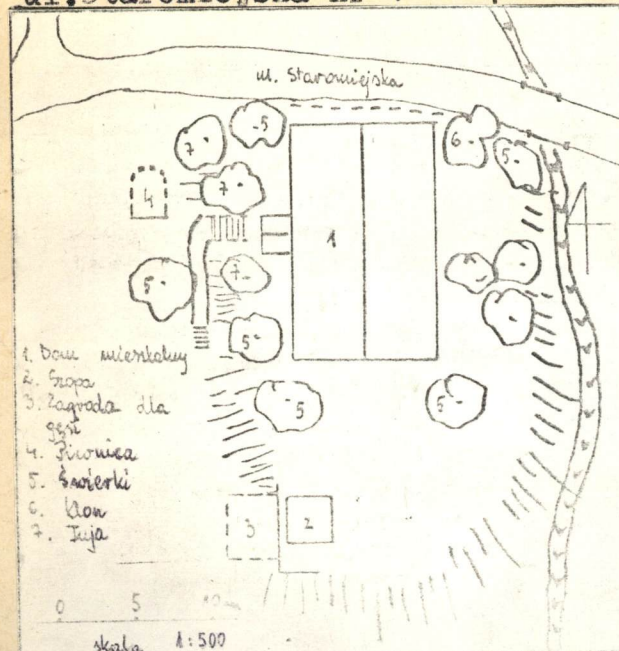 ul. Staromiejska
5
7
6
5
7
4
1
7
5
5
5
5
1. Dom mieszkalny
2. Szopa
3. Zagroda dla
gęsi
4. Piwnica
5. Świerki
6. Klon
7. Tuja
3
2
0 5 10 m
skala 1:500